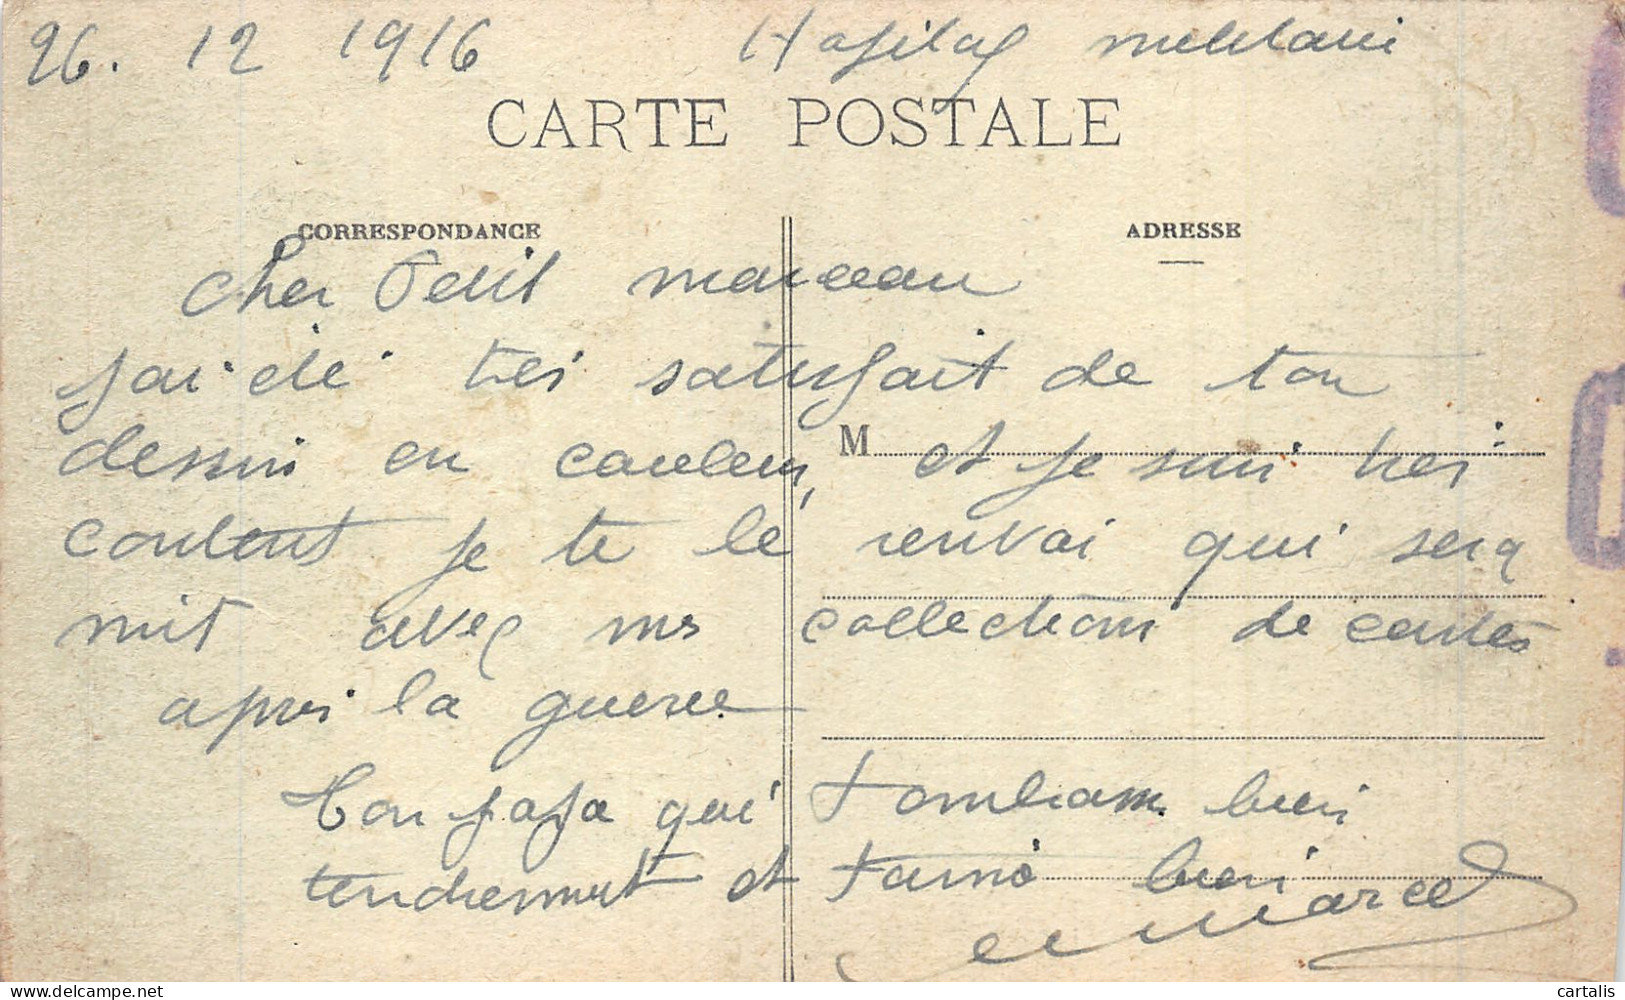 26. 12 1916 Hopital militaire
CARTE POSTALE
CORRESPONDANCE ADRESSE
cher Petit marceau
j'ai été très satisfait de ton
M
dessin en couleur, et je suis très
content je te le renvoai qui sera
mit avec ms collection de cartes
apres la guerre
Ton papa qui t'embrasse bien
tendrement et t'aime bien
Marcel
cartalis